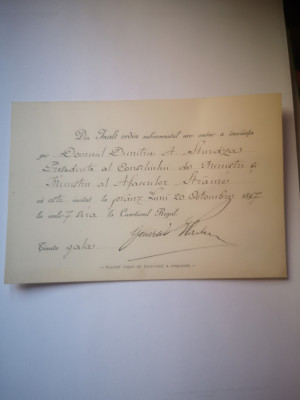 Din Înalt ordin subsemnatul are onóre a înscința
pe Domnul Dimitrie A. Sturdza
Președinte al Consiliului de Miniștri și
Ministru al Afacerilor Străine
că este invitat la prânz Luni 20 Octombre 1897
la orele 7 sera la Castelul Regal.
General
Ținuta gala